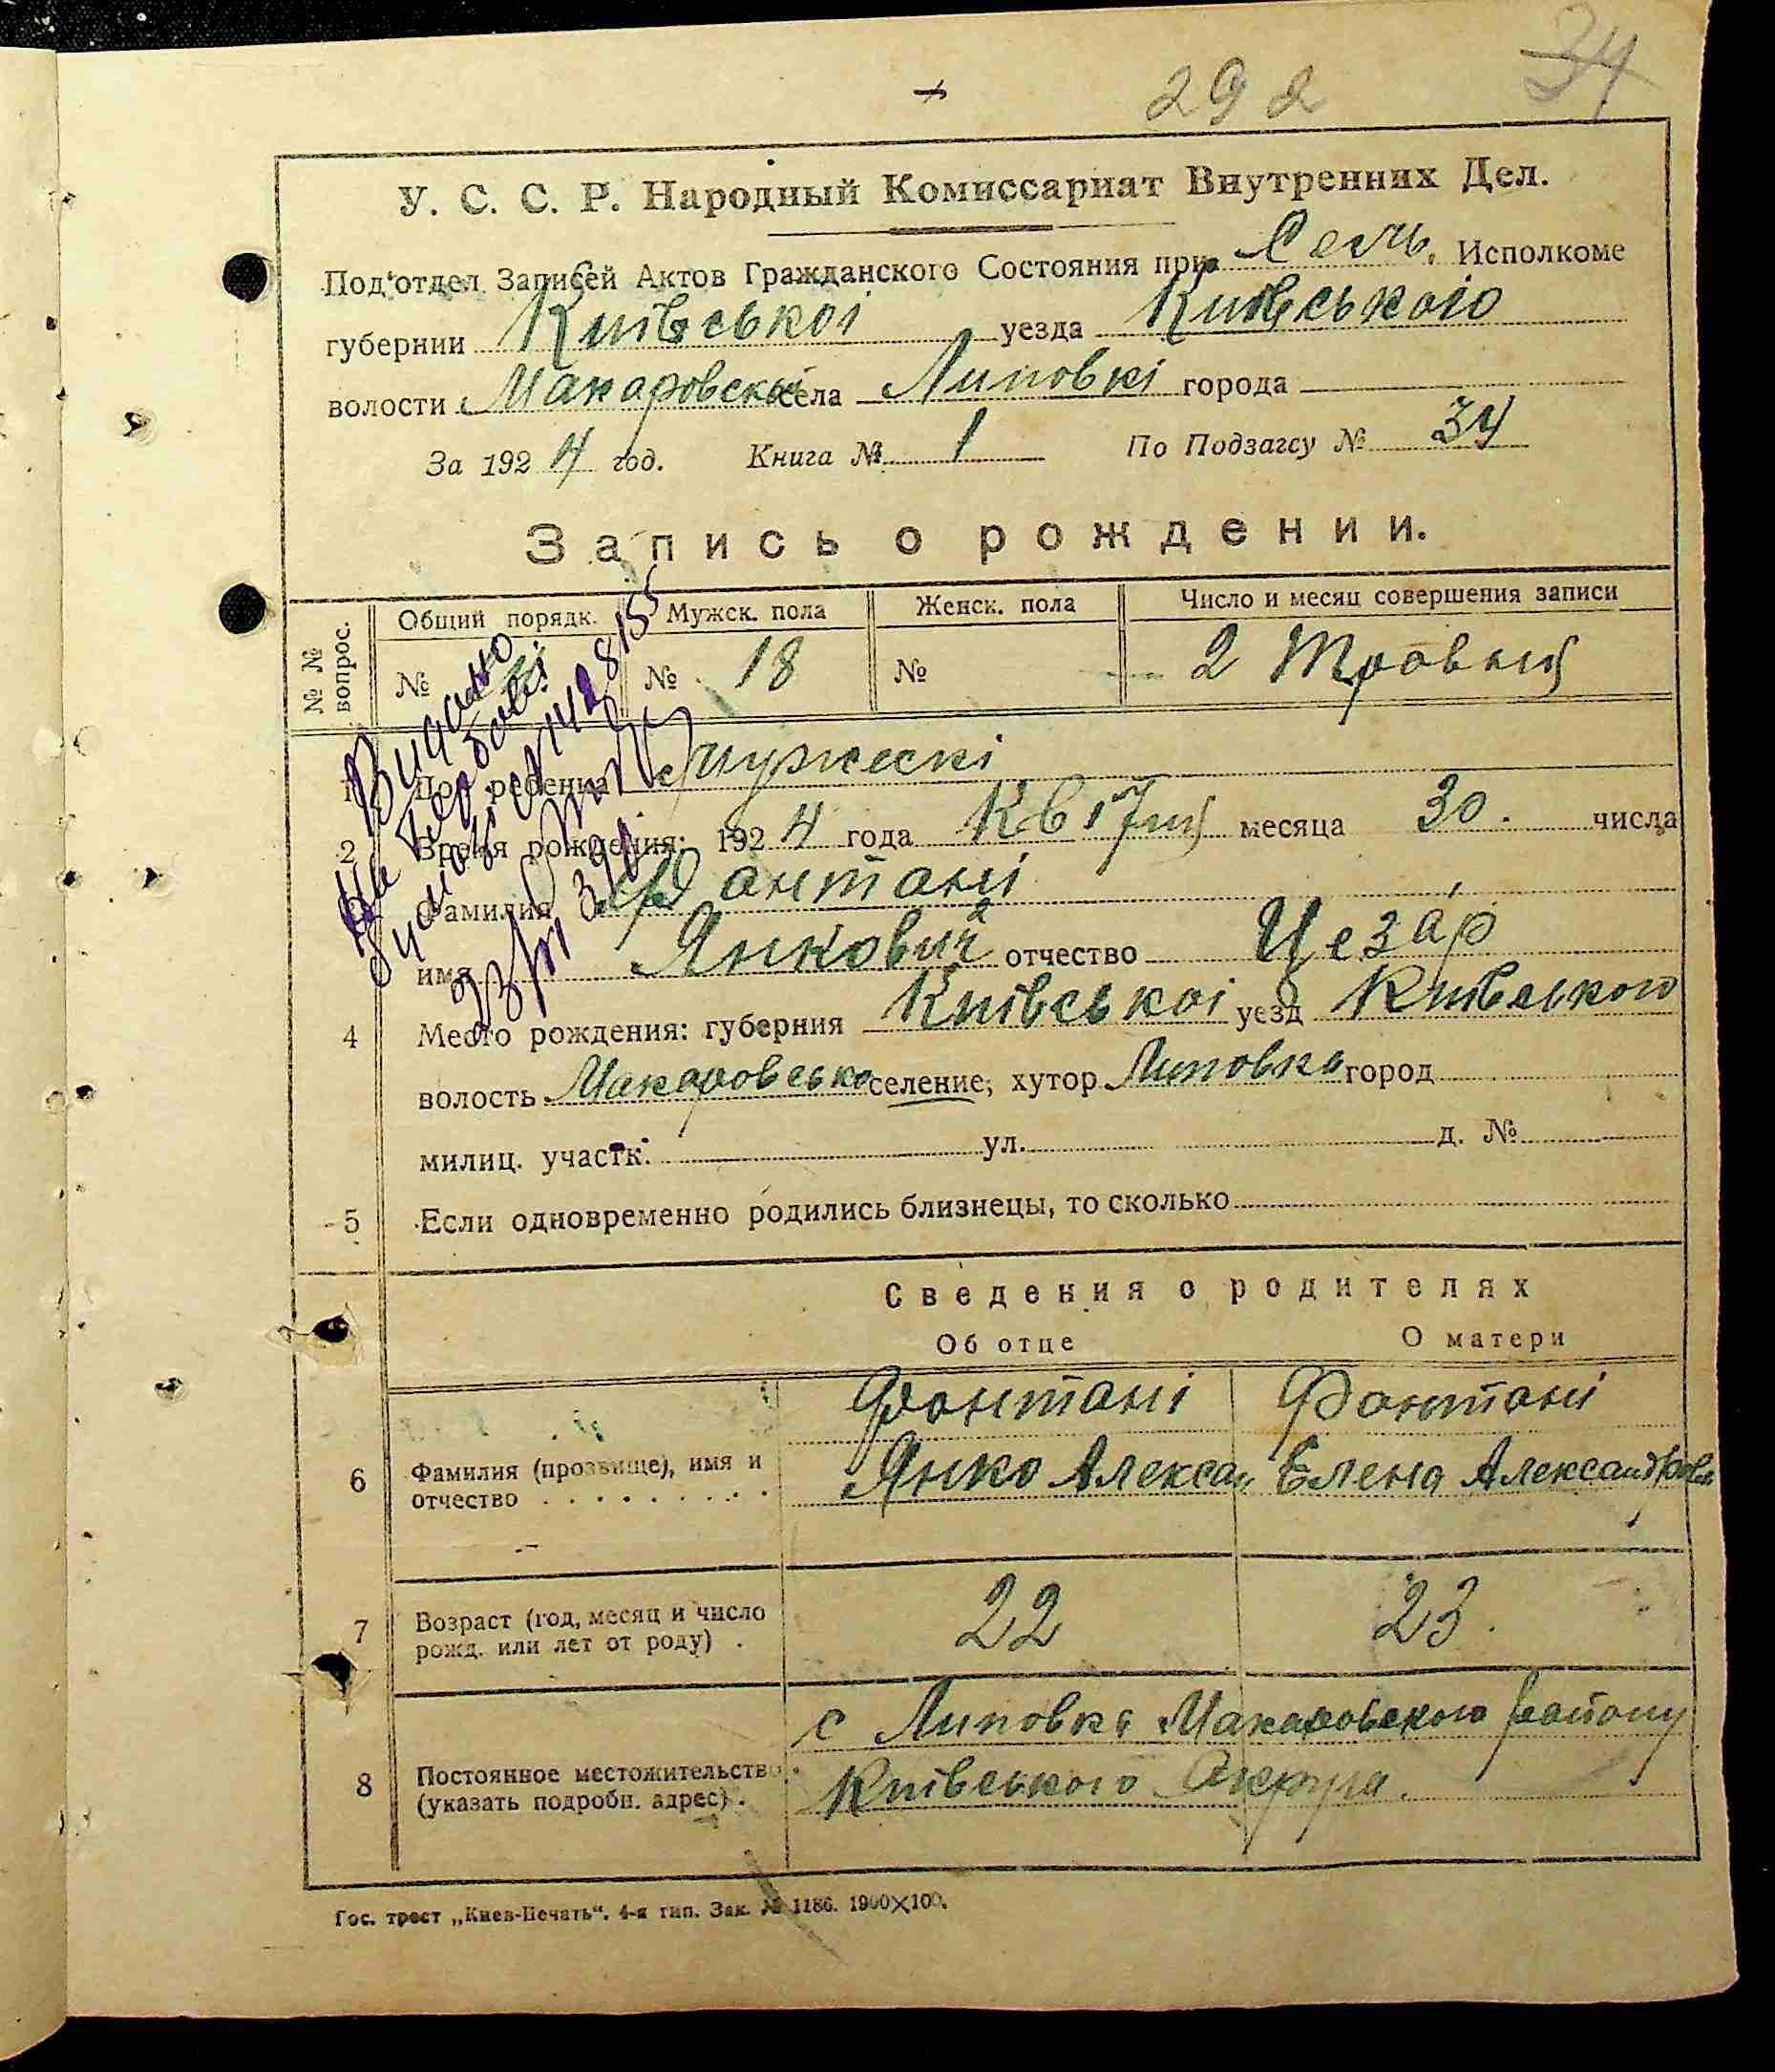 29 2 34
У. С. С. Р. Народный Комиссариат Внутренних Дел.
Под'отдел Записей Актов Гражданского Состояния при Сель. Исполкоме
губернии Київської уезда Київського
волости Макаровської села Липовкі города
За 1924 год. Книга № 1 По Подзагсу № 34
Запись о рождении.
№ № вопрос. Общий порядк. Мужск. пола Женск. пола Число и месяц совершения записи
№ № 18 № 2 Травня
1 Пол ребенка Мужескі
2 Время рождения: 1924 года Квітня месяца 30. числа
3 Фамилия Фантані
имя Янкович отчество Цезар
4 Место рождения: губерния Київської уезд Київського
волость Макаровсько селение, хутор Липовка город
милиц. участк. ул. д. №
5 Если одновременно родились близнецы, то сколько
Сведения о родителях
Об отце О матери
Фантані Фантані
6 Фамилия (прозвище), имя и отчество Янко Алексан Елена Александров
7 Возраст (год, месяц и число рожд. или лет от роду) 22 23.
с Липовка Макаровского району
8 Постоянное местожительство (указать подробн. адрес). Київського Округа.
Гос. трест „Киев-Печать“. 4-я тип. Зак. № 1186. 1900×100.
Видано